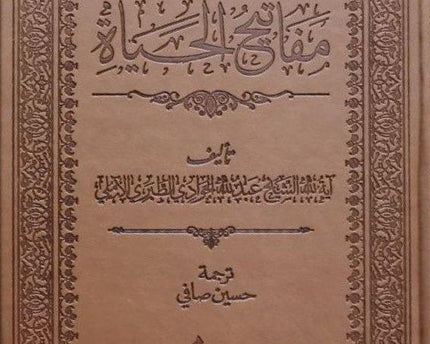 مفاتيح الحياة
تأليف
آية الله الشيخ عبد الله الجوادي الطبري الآملي
ترجمة
حسين صافي